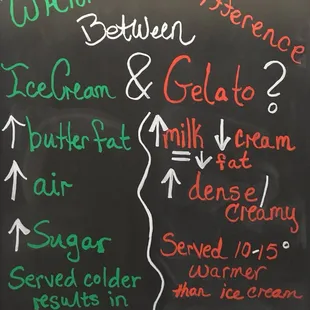 Difference
Between
IceCream & Gelato?
↑ butterfat
↑ air
↑ Sugar
Served colder
results in
↑ milk ↓ cream
= ↓ fat
↑ dense/
creamy
Served 10-15°
warmer
than ice cream